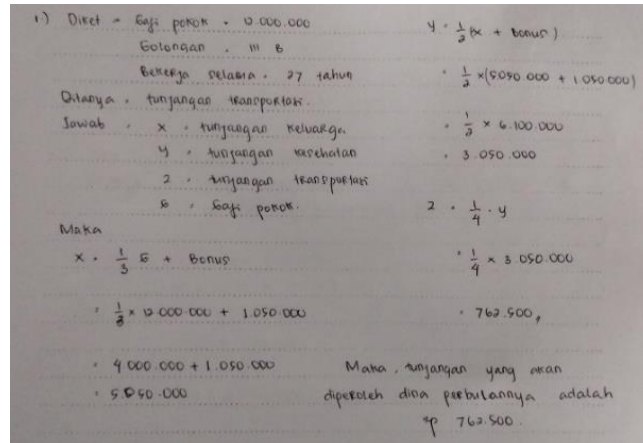 1.) Diket = Gaji pokok = 12.000.000
Golongan = III B
Bekerja selama = 27 tahun
Ditanya = tunjangan transportasi.
Jawab = x = tunjangan keluarga.
y = tunjangan kesehatan
z = tunjangan transportasi
G = Gaji pokok.
Maka
x = 1/3 G + Bonus
= 1/3 x 12.000.000 + 1.050.000
= 4.000.000 + 1.050.000
= 5.050.000
y = 1/2 (x + bonus)
= 1/2 x (5.050.000 + 1.050.000)
= 1/2 x 6.100.000
= 3.050.000
z = 1/4 . y
= 1/4 x 3.050.000
= 762.500,
Maka, tunjangan yang akan
diperoleh dina perbulannya adalah
Rp 762.500.